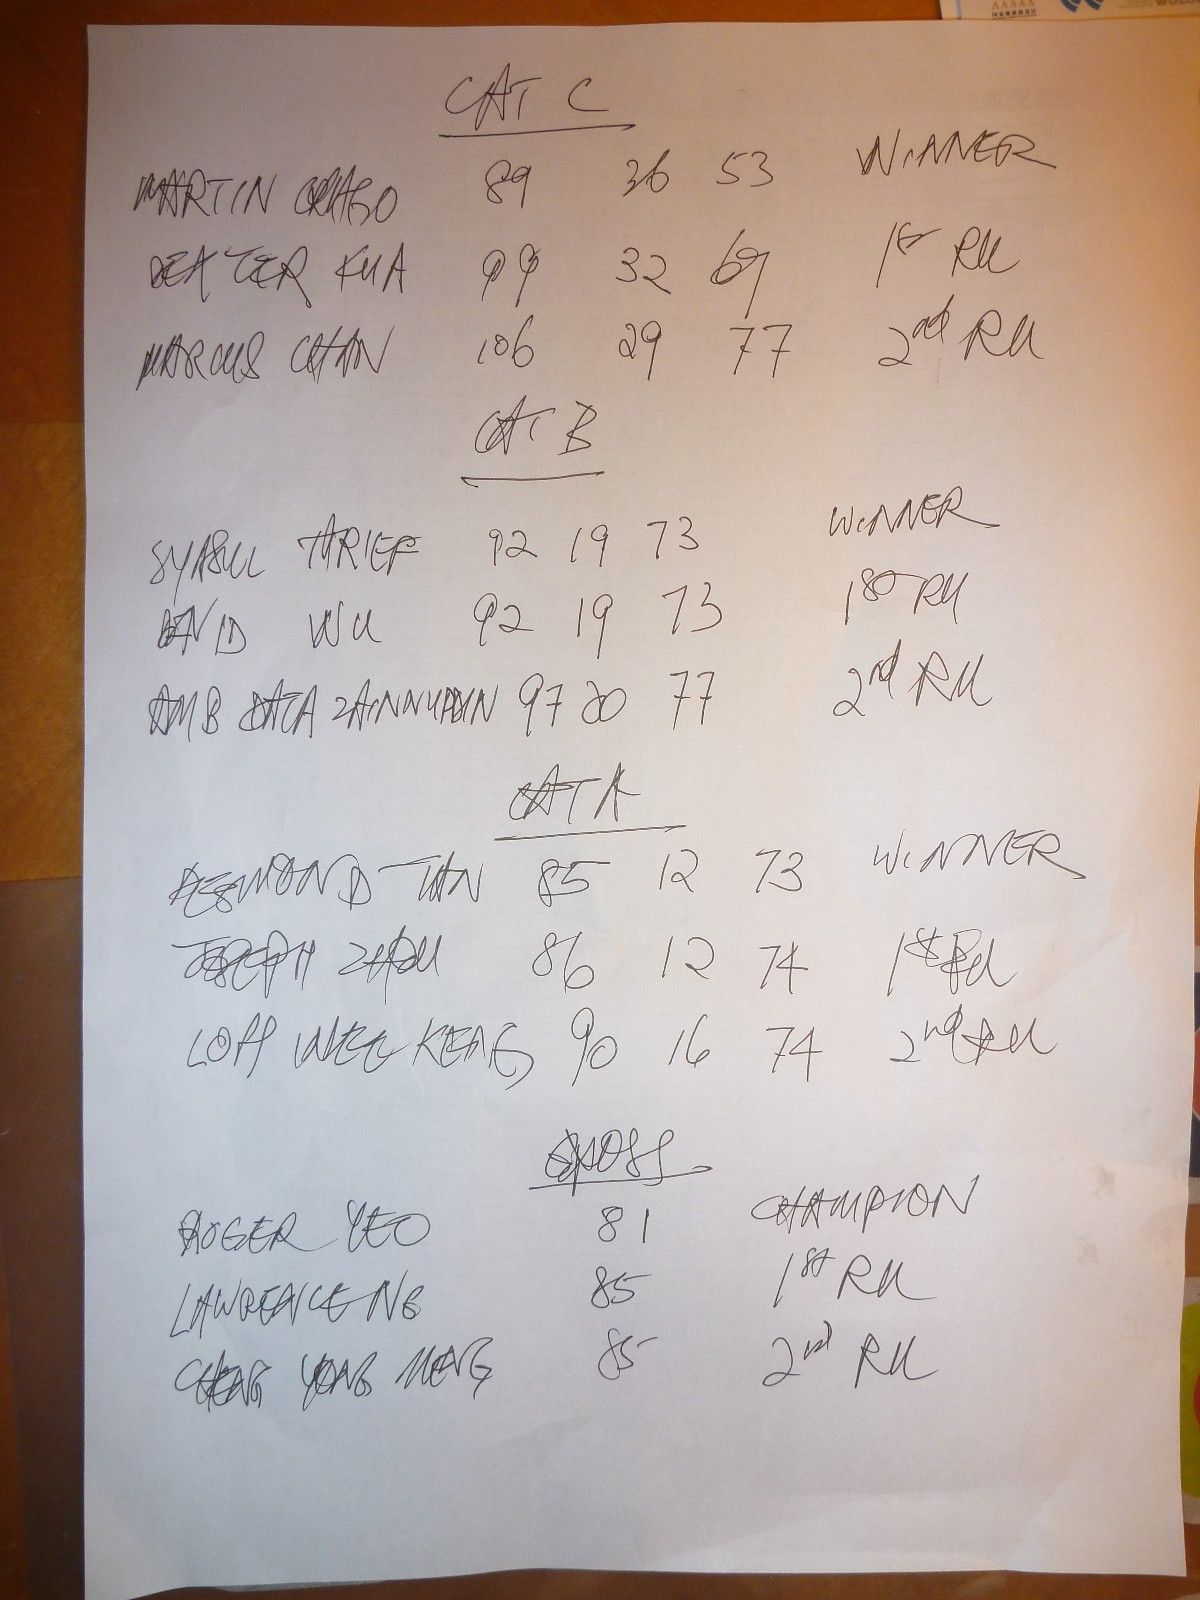 CAT C
MARTIN 89 36 53 WINNER
DEXTER KUA 99 32 67 1st RU
MARCUS CHAN 106 29 77 2nd RU
CAT B
SYABUL THRIEF 92 19 73 WINNER
DAVID WU 92 19 73 1st RU
AMB DATA ZAINNUDDIN 97 20 77 2nd RU
CAT A
DESMOND TAN 85 12 73 WINNER
JOSEPH ZHOU 86 12 74 1st RU
LOH WEE KENG 90 16 74 2nd RU
GROSS
ROGER YEO 81 CHAMPION
LAWRENCE NG 85 1st RU
CHENG YONG MENG 85 2nd RU